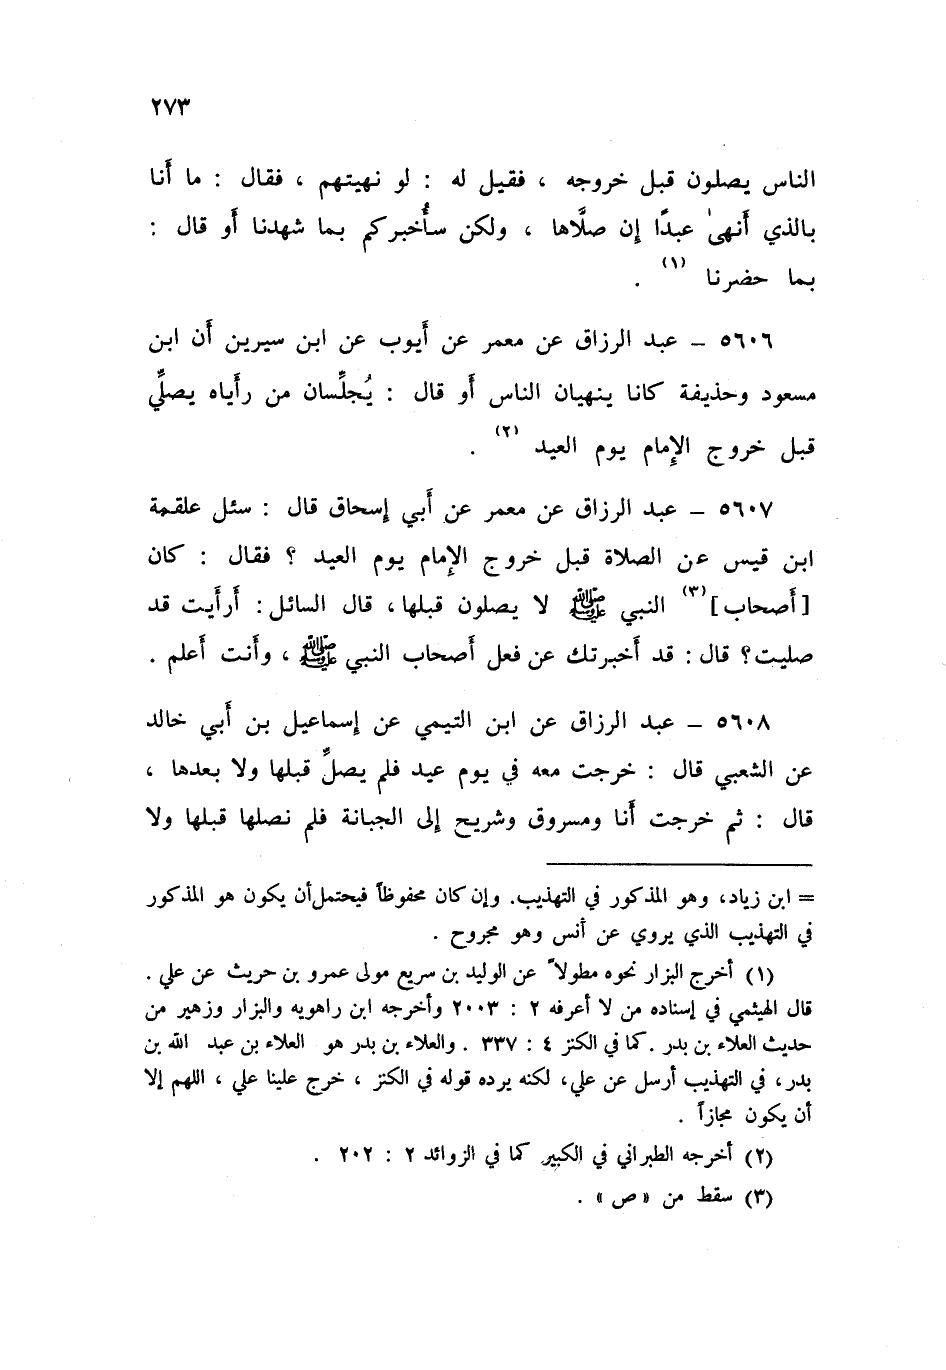 ٢٧٣
الناس يصلون قبل خروجه ، فقيل له : لو نهيتهم ، فقال : ما أَنا
بالذي أَنهىٰ عبدًا إِن صلَّاها ، ولكن سأُخبركم بما شهدنا أَو قال :
بما حضرنا (١) .
٥٦٠٦ – عبد الرزاق عن معمر عن أَيوب عن ابن سيرين أَن ابن
مسعود وحذيفة كانا ينهيان الناس أَو قال : يُجلِّسان من رأَياه يصلِّي
قبل خروج الإِمام يوم العيد (٢) .
٥٦٠٧ – عبد الرزاق عن معمر عن أَبي إِسحاق قال : سئل علقمة
ابن قيس عن الصلاة قبل خروج الإِمام يوم العيد ؟ فقال : كان
[أَصحاب] (٣) النبي ﷺ لا يصلون قبلها ، قال السائل : أَرأَيت قد
صليت؟ قال : قد أَخبرتك عن فعل أَصحاب النبي ﷺ ، وأَنت أَعلم .
٥٦٠٨ – عبد الرزاق عن ابن التيمي عن إِسماعيل بن أَبي خالد
عن الشعبي قال : خرجت معه في يوم عيد فلم يصلِّ قبلها ولا بعدها ،
قال : ثم خرجت أَنا ومسروق وشريح إِلى الجبانة فلم نصلها قبلها ولا
= ابن زياد، وهو المذكور في التهذيب. وإن كان محفوظاً فيحتمل أن يكون هو المذكور
في التهذيب الذي يروي عن أنس وهو مجروح .
(١) أخرج البزار نحوه مطولاً عن الوليد بن سريع مولى عمرو بن حريث عن علي .
قال الهيثمي في إسناده من لا أعرفه ٢ : ٢٠٠٣ وأخرجه ابن راهويه والبزار وزهير من
حديث العلاء بن بدر . كما في الكنز ٤ : ٣٣٧ . والعلاء بن بدر هو العلاء بن عبد الله بن
بدر ، في التهذيب أرسل عن علي، لكنه يرده قوله في الكنز ، خرج علينا علي ، اللهم إلا
أن يكون مجازاً .
(٢) أخرجه الطبراني في الكبير كما في الزوائد ٢ : ٢٠٢ .
(٣) سقط من « ص » .